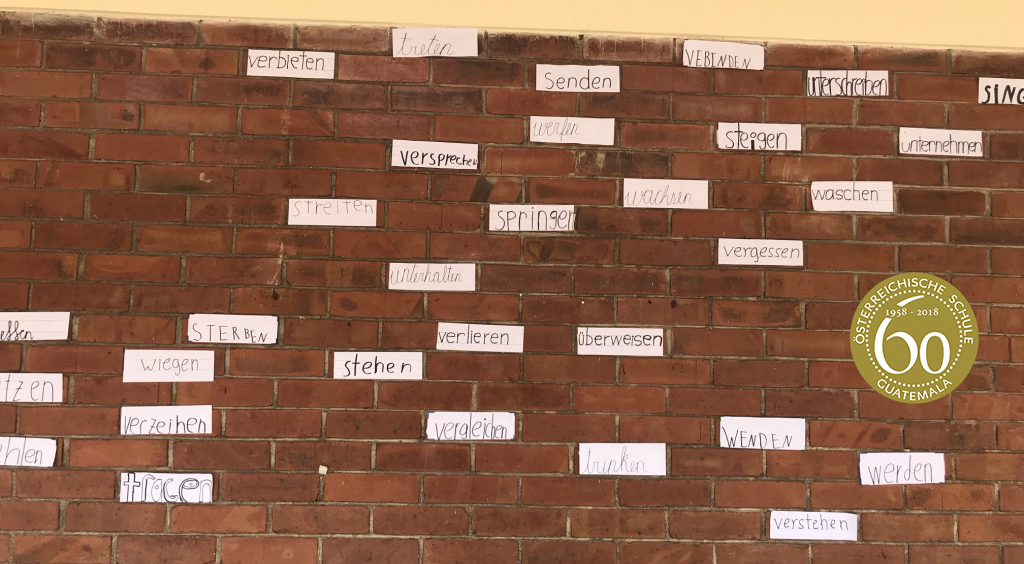 treten
verbieten
VEBINDEN
senden
unterschreiben
SING
werfen
steigen
unternehmen
versprechen
wachsen
waschen
streiten
springen
vergessen
unterhalten
essen
STERBEN
verlieren
überweisen
wiegen
stehen
itzen
verzeihen
vergleichen
WENDEN
ehlen
trinken
werden
tragen
verstehen
ÖSTERREICHISCHE SCHULE
1958 - 2018
60
GUATEMALA